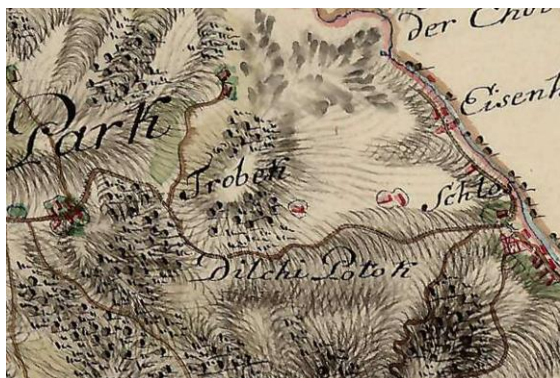 der Cho
Eisenh
Park
Trobek
Schlo
Dilchi Potok